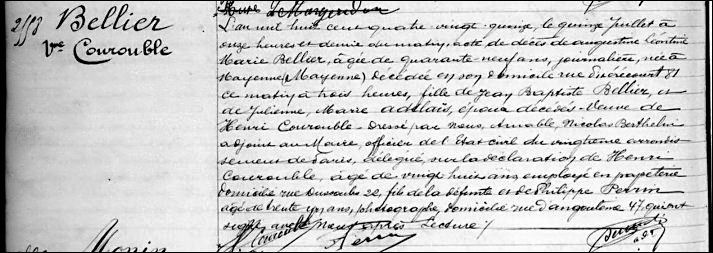 2513 Bellier
Vve Courouble
L'an mil huit cent quatre vingt quinze, le quinze juillet à
onze heures et demie du matin, acte de décès de augustine Léontine
Marie Bellier, âgée de quarante neuf ans, journalière, née à
Mayenne (Mayenne) décédée en son domicile rue d'héricourt 81
ce matin à trois heures, fille de Jean Baptiste Bellier, et
de Julienne, Marie adelaïs, époux décédés - Veuve de
Henri Courouble - Dressé par nous, Amable, Nicolas Berthelin
adjoint au Maire, officier de l'Etat Civil du vingtième arrondis
sement de Paris, délégué, sur la déclaration de Henri
Courouble, âgé de vingt huit ans, employé en papeterie
domicilié rue 22, fils de la défunte et de Philippe Perrin
âgé de trente ans, photographe, domicilié rue d'angoulême 47, qui ont
signé avec nous après Lecture /
H Courouble Perrin
Monin